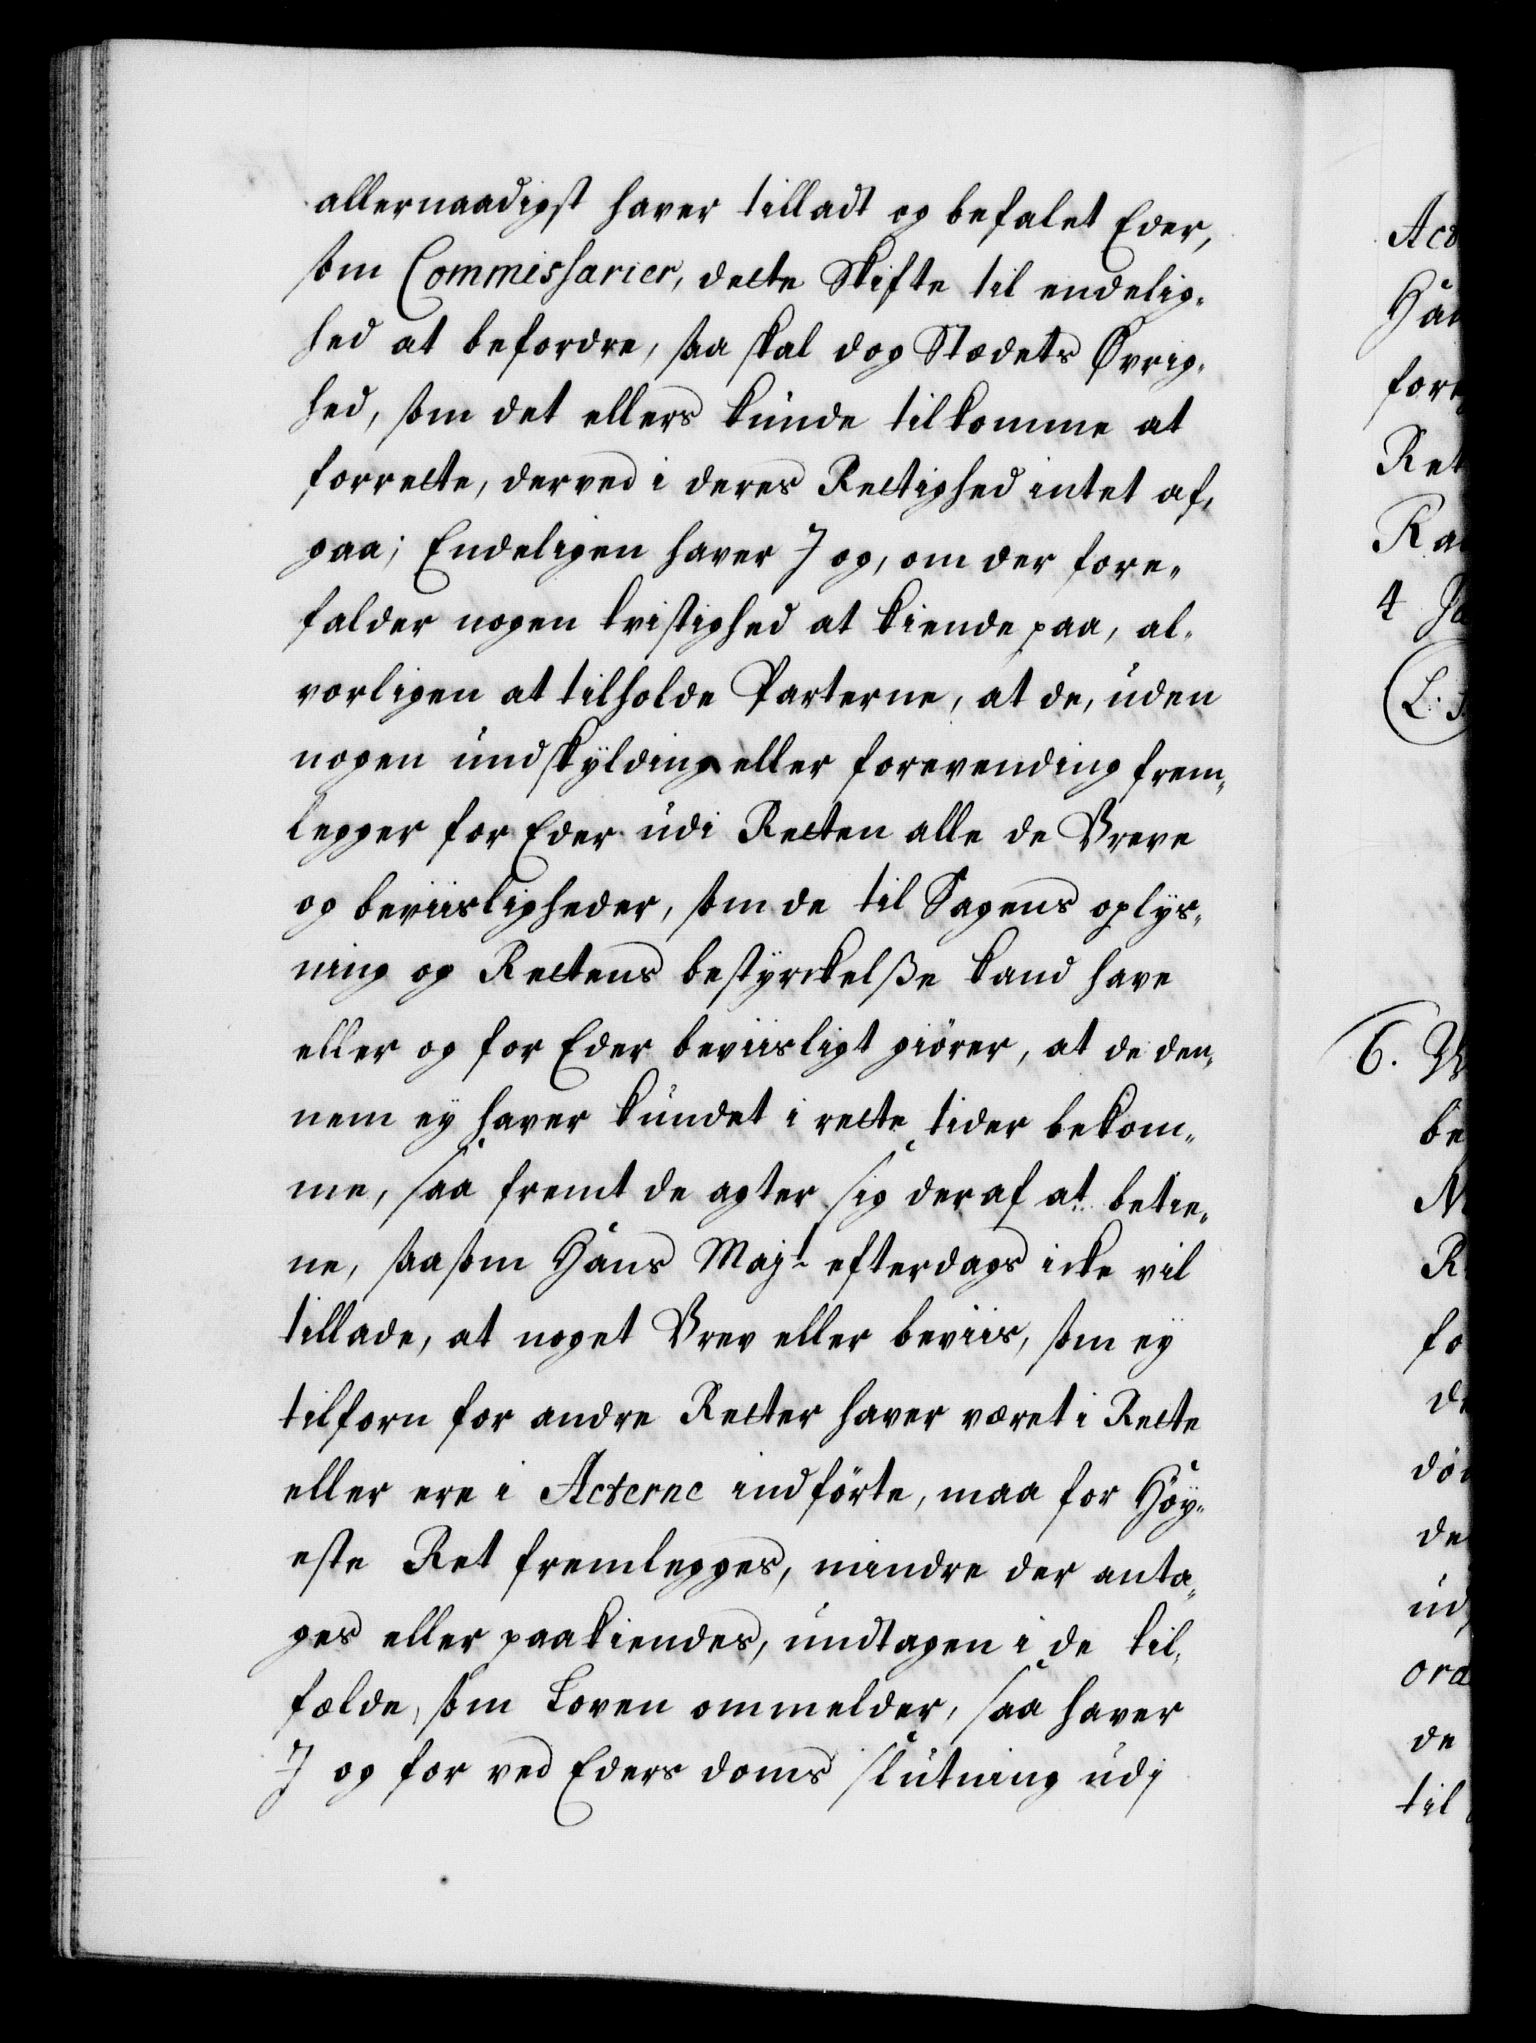 allernaadigst haver tilladt og befalet Eder,
som Commissarier, dette Skifte til endelig-
hed at befordre, saa skal dog Stedets Øvrig-
hed, som det ellers kunde tilkomme at
forrette, derved i deres Rettighed intet af-
gaa; Endeligen haver I og, om der fore-
falder nogen tvistighed at kiende paa, al-
vorligen at tilholde Parterne, at de, uden
nogen undskylding eller forevending frem-
legger for Eder udi Retten alle de Breve
og beviisligheder, som de til Sagens oplys-
ning og Rettens bestyrckelße kand have
eller og for Eder beviisligt giörer, at de den-
nem ey haver kundet i rette tider bekom-
me, saa fremt de agter sig deraf at betie-
ne, saasom Hans Majt efterdags icke vil
tillade, at noget Brev eller beviis, som ey
tilforn for andre Retter haver været i Rette
eller ere i Acterne indförte, maa for Höy-
este Ret fremlegges, mindre der anta-
ges eller paakiendes, undtagen i de til-
fælde, som Loven ommelder, saa haver
I og for ved Eders doms slutning udj
Act
Han
for
Ret
Ra
4
L.S.
6. W
be
R
fo
de
de
ud
ord
de
til